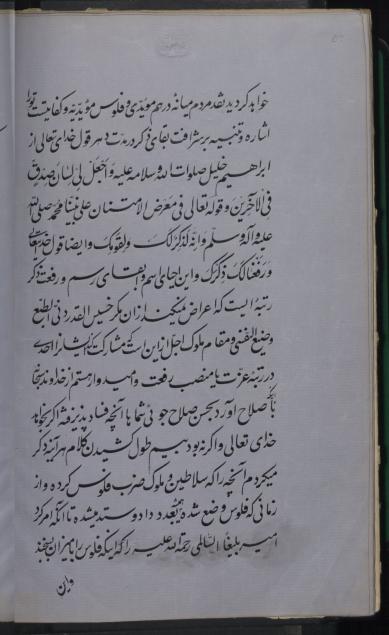 خواهد کردید نقد مردم میانه درهم مویدی و فلوس مؤیدیه و کفایت تورا
اشاره و تنبیه بر شرافت بقای ذکر در مدت دهر قول خدای تعالی از
ابراهیم خلیل صلوات الله و سلامه علیه وَاجْعَل لِی لِسَانَ صِدْقٍ
فِی الْآخِرِینَ و قوله تعالی فی معرض الامتنان علی نبینا محمد صلی الله
علیه و آله و سلم وَ اِنَّهُ لَذِکْرٌ لَکَ وَلِقَوْمِکَ و ایضا قول خدایتعالی
وَرَفَعْنَا لَکَ ذِکْرَکَ و این احیای اسم و ابقای رسم و رفعت ذکر
رتبه ایست که اعراض نمیکند از ان مکر خسیس القدر دنی الطبع
وضیع النفس و مقام ملوک اجل از این است که مشارکت کند ایشانرا احدی
در رتبه عزت یا منصب رفعت و امیدوار هستم از خداوند سبحانه
تا صلاح آورد بحسن صلاح جوئی شما با آنچه فساد پذیرفته اگر بخواهد
خدای تعالی و اگر نبود بیم طول کشیدن کلام هر آینه ذکر
میکردم آنچه را که سلاطین و ملوک ضرب فلوس کرده و از
زمانی که فلوس وضع شده بعدد داد و ستد میشده تا آنکه امر کرد
امیر یلبغا السالمی رحمة الله علیه را که اینکه فلوس را بمیزان بسنجند
و این